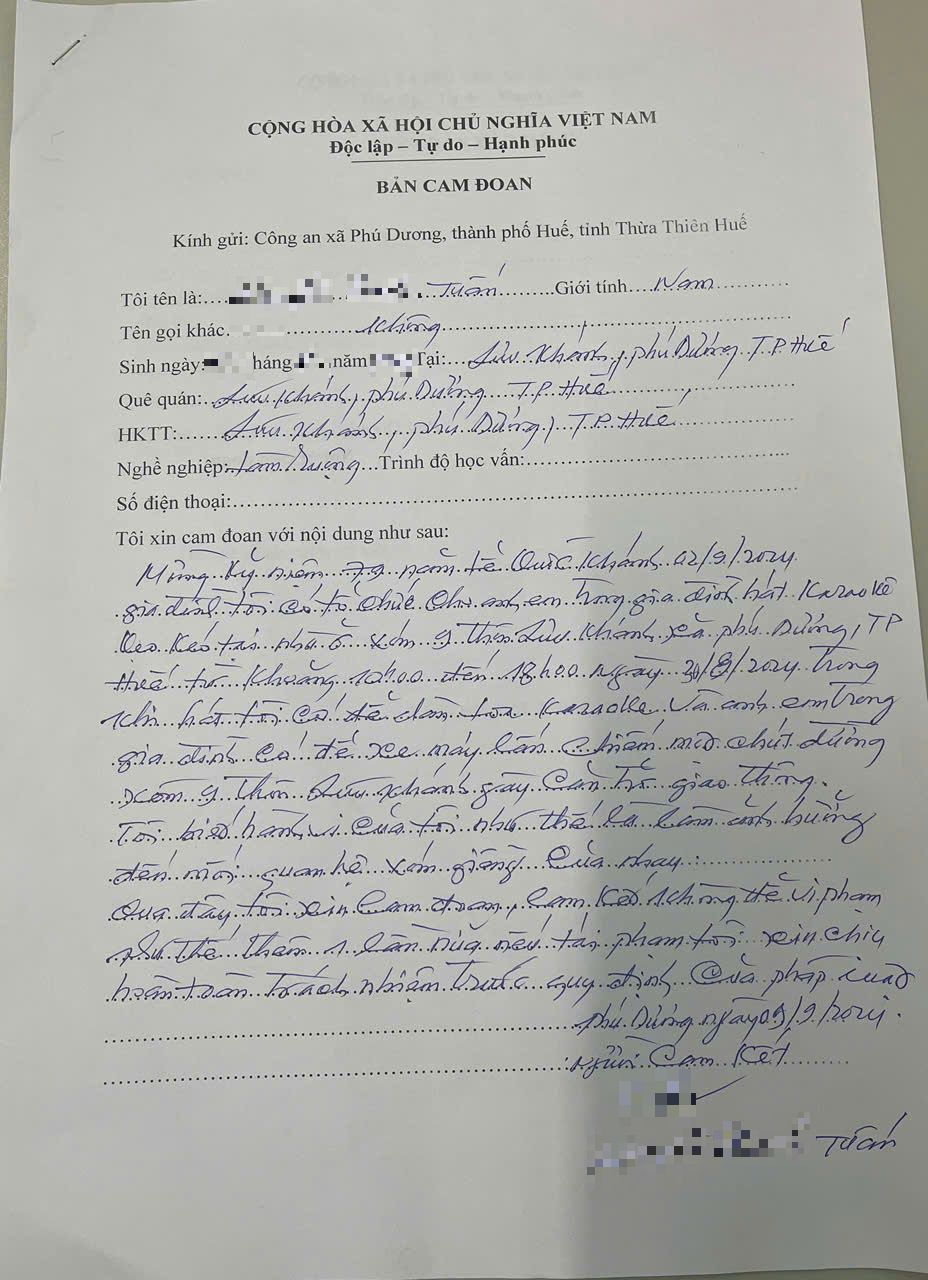 CỘNG HÒA XÃ HỘI CHỦ NGHĨA VIỆT NAM
Độc lập – Tự do – Hạnh phúc
BẢN CAM ĐOAN
Kính gửi: Công an xã Phú Dương, thành phố Huế, tỉnh Thừa Thiên Huế
Tôi tên là:............Tuấn........Giới tính...Nam............
Tên gọi khác............Không............
Sinh ngày: tháng năm Tại:...Lưu Khánh, phú Dương, T.P Huế
Quê quán:...Lưu Khánh, phú Dương, T.P Huế
HKTT:......Lưu Khánh, phú Dương, T.P Huế
Nghề nghiệp: Làm ruộng...Trình độ học vấn:............
Số điện thoại:............
Tôi xin cam đoan với nội dung như sau:
Mừng kỷ niệm 79 năm lễ Quốc Khánh 02/9/2024
gia đình tôi có tổ chức cho anh em trong gia đình hát Karaoke
kẹo kéo tại nhà ở xóm 9 thôn Lưu Khánh xã phú Dương, TP
Huế từ khoảng 12h00 đến 18h00 ngày /2024 Trong
khi hát tôi có để dàn loa Karaoke và anh em trong
gia đình có để xe máy lấn chiếm một chút đường
xóm 9 thôn Lưu Khánh gây cản trở giao thông.
Tôi biết hành vi của tôi như thế là làm ảnh hưởng
đến mối quan hệ xóm giềng của nhau.
Qua đây tôi xin cam đoan, cam kết không để vi phạm
như thế thêm 1 lần nữa nếu tái phạm tôi xin chịu
hoàn toàn trách nhiệm trước quy định của pháp luật
phú Dương ngày 09/9/2024.
Người Cam Kết
Tuấn